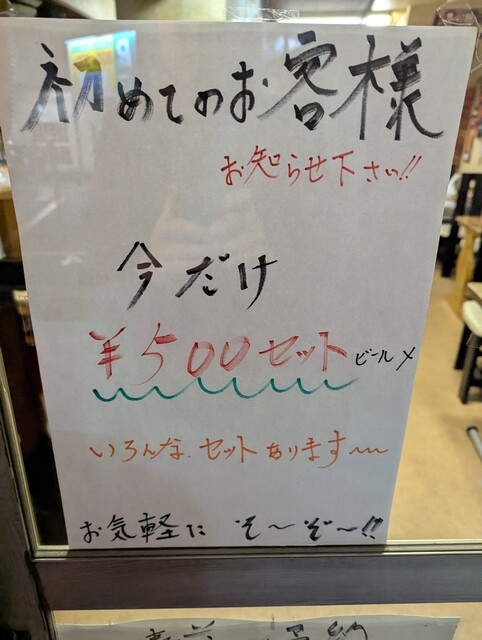 初めてのお客様
お知らせ下さい!!
今だけ
¥500セット ビール〆
いろんな.セットあります〜
お気軽に ぞ〜ぞ〜!!